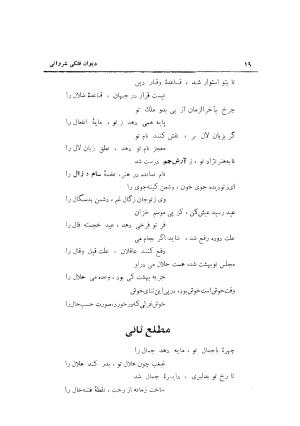 ۱۹ دیوان فلکی شروانی
تا بتو استوار شد ، قاعدهٔ وقار دین
نیست قرار در جهان ، قاعدهٔ ضلال را
چرخ بآخرالزمان از پی بدو ملک تو
پایه همی دهد ز تو ، مایهٔ افعال را
گر بزبان لال بر ، نقش کنند نام تو
معجز نام تو دهد ، نطق زبان لال را
تا به هنر نژاد تو ، ز آرش جم درست شد
نام نمانده در هنر، تخمهٔ سام و زال را
ای زتو دیده جوی خون ، دشمن کینه‌جوی را
وی زتوجان زگال غم، دشمن بدسگال را
عید رسید عیش کن، کز پی موسم خزان
فر تو فرخی دهد ، عید خجسته فال را
علت روزه رفع شد ، شاید اگر بجام می
رفع کنند عاقلان ، علت قیل وقال را
مجلس تو بهشت شد، هست حلال می درو
جز به بهشت کی بود، وعده می حلال را
وقت خوش است خوش بود، در پی این ثنای خوش
خوش غزلی که در خورد، صورت حسب حال را
مطلع ثانی
چهرهٔ باجمال تو ، مایه دهد جمال را
غبغب چون هلال تو ، بدر کند هلال را
تا رخ تو بدلبری ، دایرهٔ جمال شد
ساخت زمانه از رخت ، نقطهٔ فتنه خال را